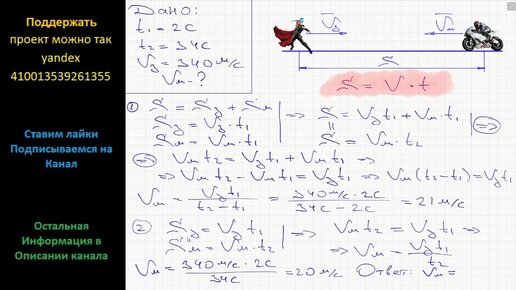 Поддержать
проект можно так
yandex
410013539261355
Ставим лайки
Подписываемся на
Канал
Остальная
Информация в
Описании канала
Дано:
t₁ = 2с
t₂ = 34с
Vз = 340 м/с
Vм - ?
Vз
Vм
S
S = V · t
① S = Sз + Sм
Sз = Vз t₁
Sм = Vм t₁
=> S = Vз t₁ + Vм t₁
S = Vм t₂
=>
=> Vм t₂ = Vз t₁ + Vм t₁ =>
=> Vм t₂ - Vм t₁ = Vз t₁ => Vм (t₂ - t₁) = Vз t₁
Vм = Vз t₁ / (t₂ - t₁) = 340 м/с · 2с / (34с - 2с) = 21 м/с
② Sз = Vз t₁
Sм = Vм · t₂
=> Vм t₂ = Vз t₁ =>
=> Vм = Vз t₁ / t₂
Vм = 340 м/с · 2с / 34с = 20 м/с Ответ: Vм =